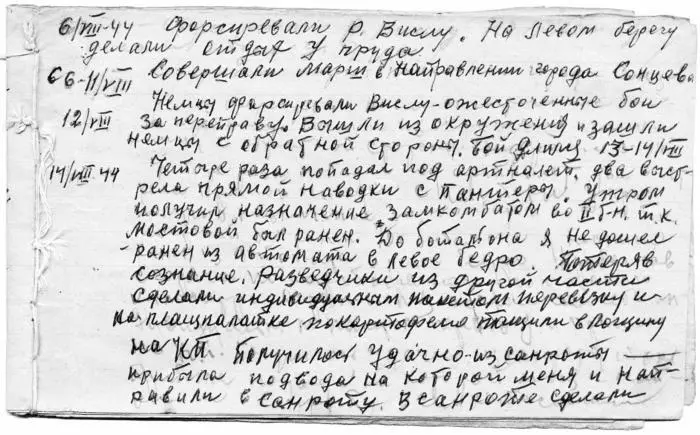 6/VIII-44 Форсировали р. Вислу. На левом берегу
делали отдых у пруда
С 6-11/VIII Совершали марш в направлении города Сонцева
Немцы форсировали Вислу-ожесточенные бои
12/VIII за переправу. Вышли из окружения и зашли
немцы с обратной стороны. Бой длился 13-14/VIII
14/VIII 44 Четыре раза попадал под артналет. два выст-
рела прямой наводки с Пантеры. Утром
получил назначение замкомбатом во II б-н, т.к.
Мостовой был ранен. До батальона я не дошел
ранен из автомата в левое бедро. Потеряв
сознание. Разведчики из другой части
сделали индивидуальным пакетом перевязку и
на плащпалатке по картофелю тащили в лощину
на КП. Получилось удачно-из санроты
прибыла подвода на которой меня и нап-
равили в санроту. В санроте сделали